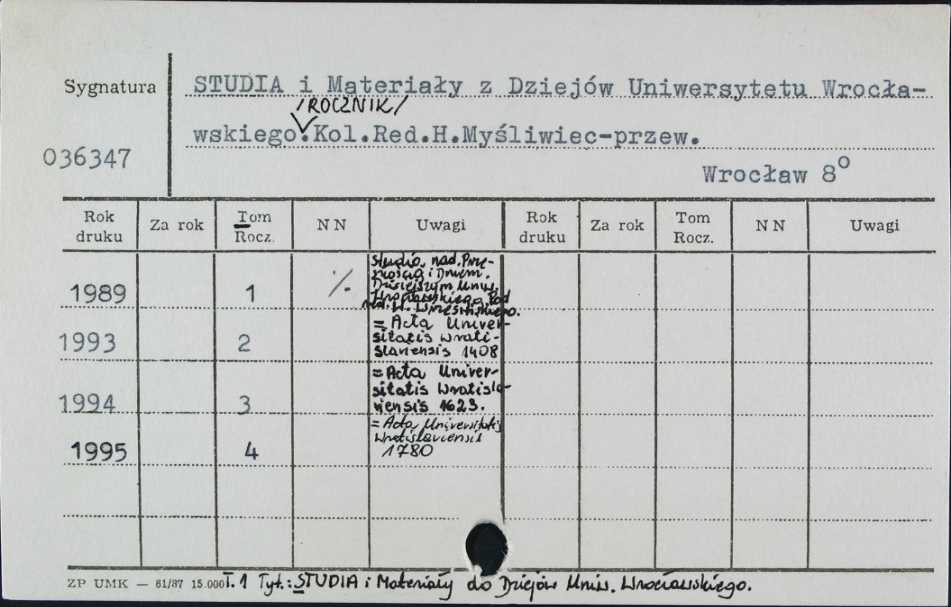 Sygnatura
STUDIA i Materiały z Dziejów Uniwersytetu Wrocła-
/ROCZNIK/
wskiego.Kol.Red.H.Myśliwiec-przew.
036347
Wrocław 8°
Rok druku Za rok Tom Rocz. NN Uwagi Rok druku Za rok Tom Rocz. NN Uwagi
Studia nad Prze-
szłością i Dniem
Dzisiejszym Uniw.
1989 1 % Wrocławskiego. Pod
red. W. Wrzesińskiego.
= Acta Univer-
1993 2 sitatis Wrati-
slaviensis 1408
= Acta Univer-
sitatis Wratisla-
1994 3 viensis 1623.
= Acta Universitatis
Wratislaviensis
1995 4 1780
ZP UMK — 61/87 15.000
T.1 Tyt.: STUDIA i Materiały do Dziejów Uniw. Wrocławskiego.